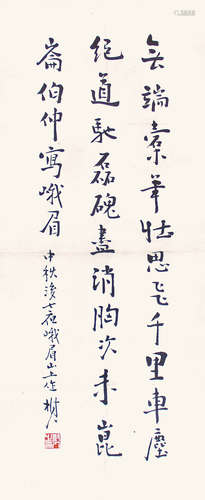 無端橐筆壮思飞千里車塵
絕道馳磊磈盡消胸次未崑
崙伯仲寫峨眉
中秋後七夜峨眉山上作